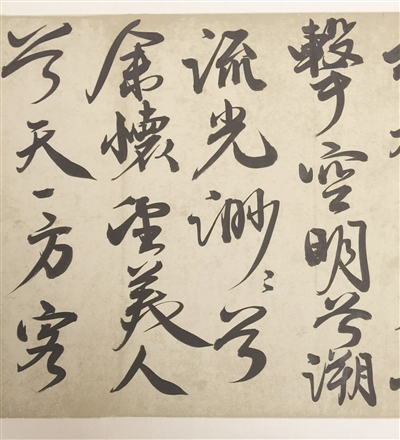 擊空明兮溯
流光渺〻兮
余懷望美人
兮天一方客